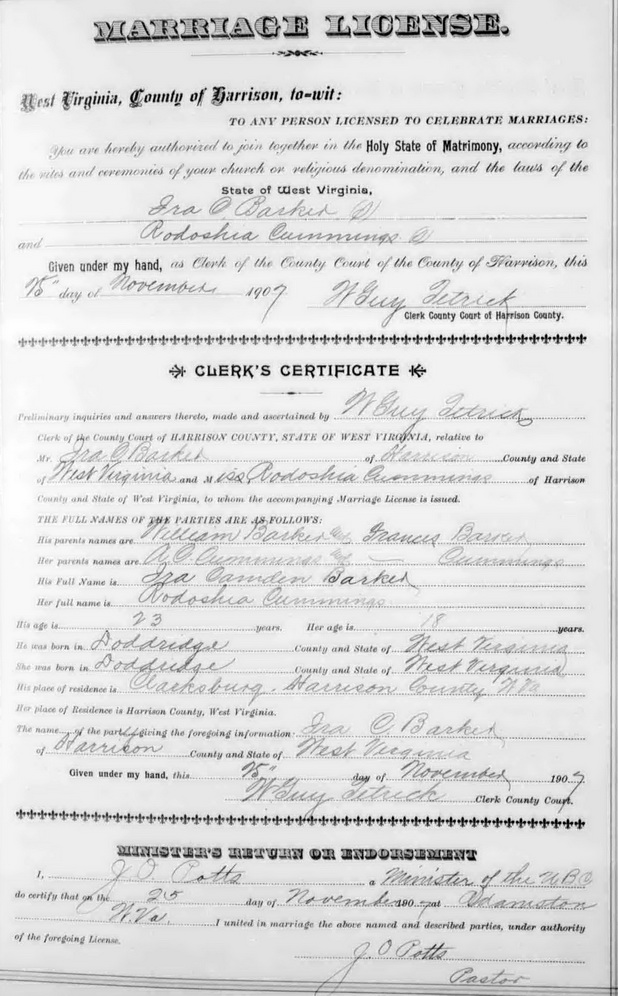 MARRIAGE LICENSE.
West Virginia, County of Harrison, to-wit:
TO ANY PERSON LICENSED TO CELEBRATE MARRIAGES:
You are hereby authorized to join together in the Holy State of Matrimony, according to
the rites and ceremonies of your church or religious denomination, and the laws of the
State of West Virginia,
Ira C Barker
and Rodoshia Cummings
Given under my hand, as Clerk of the County Court of the County of Harrison, this
25" day of November 1907 W Guy Tetrick
Clerk County Court of Harrison County.
CLERK'S CERTIFICATE
Preliminary inquiries and answers thereto, made and ascertained by W Guy Tetrick
Clerk of the County Court of HARRISON COUNTY, STATE OF WEST VIRGINIA, relative to
Mr. Ira C Barker of Harrison County and State
of West Virginia and Miss Rodoshia Cummings of Harrison
County and State of West Virginia, to whom the accompanying Marriage License is issued.
THE FULL NAMES OF THE PARTIES ARE AS FOLLOWS:
His parents names are William Barker and Francis Barker
Her parents names are A.C. Cummings and — Cummings
His Full Name is Ira Camden Barker
Her full name is Rodoshia Cummings
His age is 23 years. Her age is 18 years.
He was born in Doddridge County and State of West Virginia
She was born in Doddridge County and State of West Virginia
His place of residence is Clarksburg, Harrison County W Va
Her place of Residence is Harrison County, West Virginia.
The name of the party giving the foregoing information: Ira C Barker
of Harrison County and State of West Virginia
Given under my hand, this 25" day of November 1907
W Guy Tetrick Clerk County Court.
MINISTER'S RETURN OR ENDORSEMENT
I, J. O Potts a Minister of the U B C
do certify that on the 25 day of November 1907 at Adamston
W. Va. I united in marriage the above named and described parties, under authority
of the foregoing License.
J. O Potts
Pastor